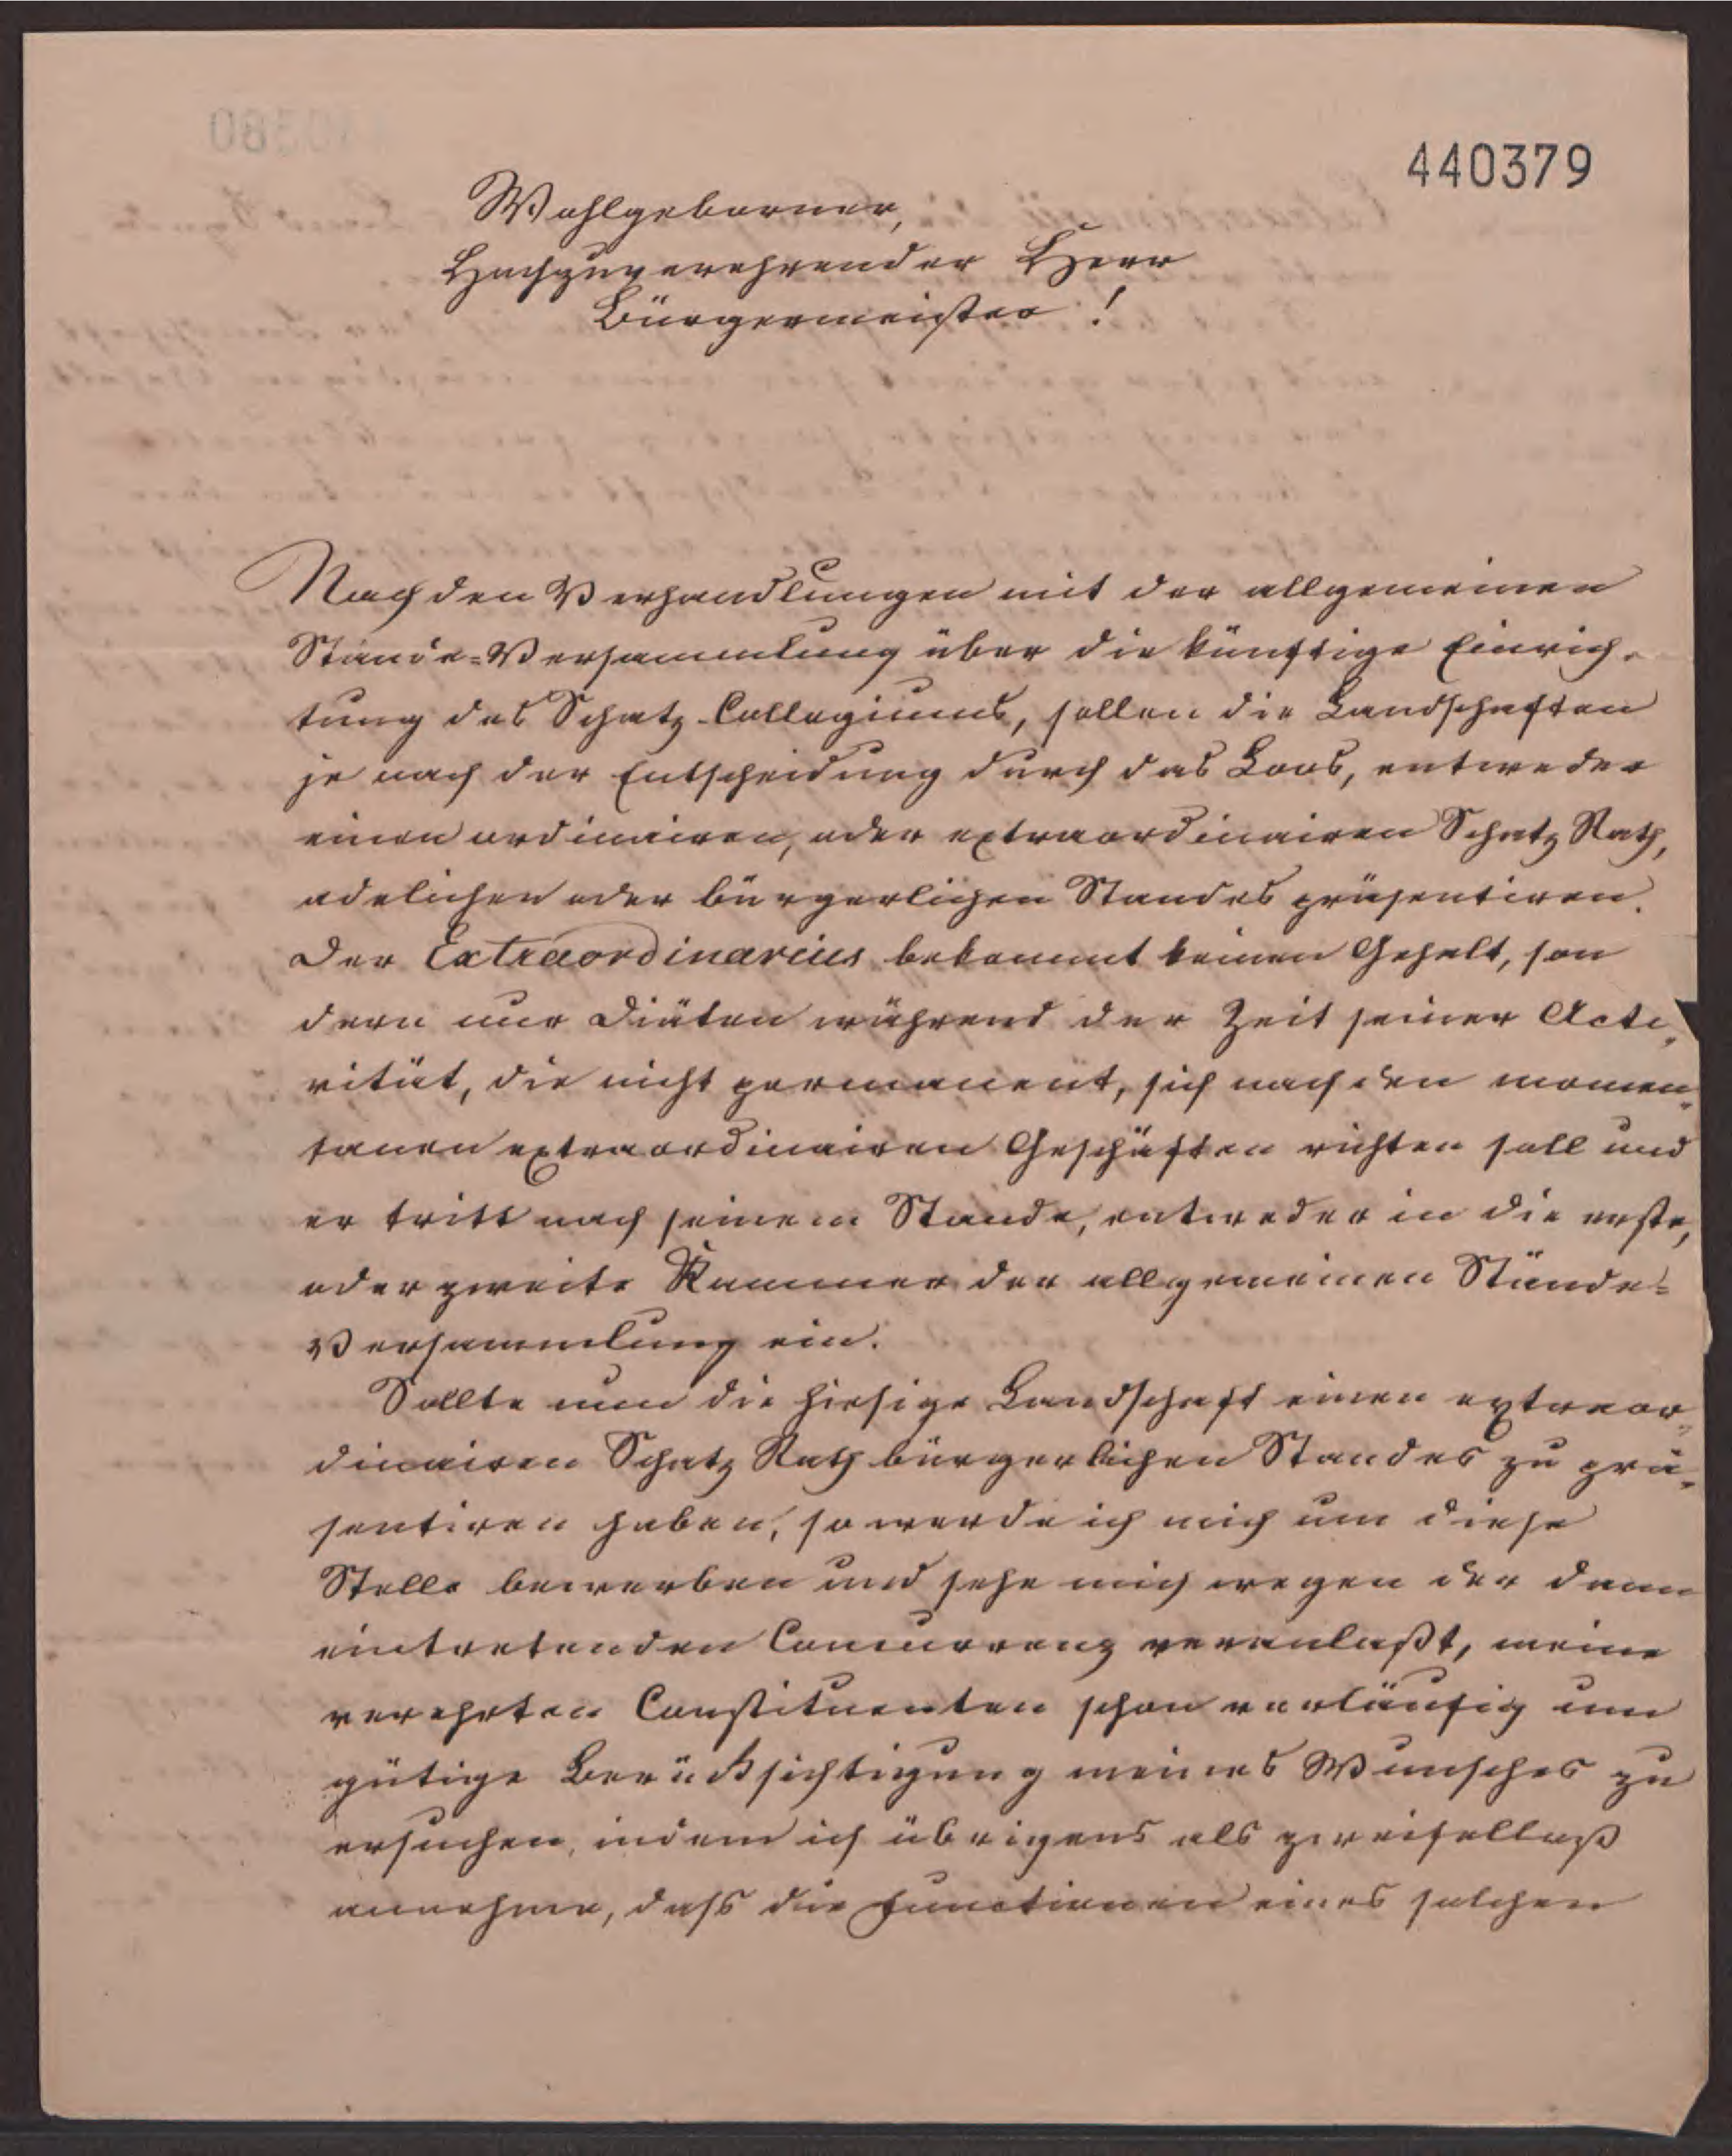 440379
Wohlgeborner,
Hochzuverehrender Herr
Bürgermeister!
Nach den Verhandlungen mit der allgemeinen
Stände-Versammlung über die künftige Einrich-
tung des Schatz-Collegiums, sollen die Landschaften
je nach der Entscheidung durch das Loos, entweder
einen ordinairen, oder extraordinairen Schatz Rath,
adelichen oder bürgerlichen Standes präsentiren.
Der Extraordinarius bekommt keinen Gehalt, son
dern nur Diäten während der Zeit seiner Acti-
vität, die nicht permanent, sich nach den momen-
tanen extraordinairen Geschäften richten soll und
er tritt nach seinem Stande, entweder in die erste,
oder zweite Kammer der allgemeinen Stände-
Versammlung ein.
Sollte nun die hiesige Landschaft einen extraor-
dinairen Schatz Rath bürgerlichen Standes zu prä-
sentiren haben, so werde ich mich um diese
Stelle bewerben und sehe mich wegen der dann
eintretenden Concurrenz veranlaßt, meine
verehrten Constituenten schon vorläufig um
gütige Berücksichtigung meines Wunsches zu
ersuchen, indem ich übrigens als zweifellos
annehme, dass die Functionen eines solchen